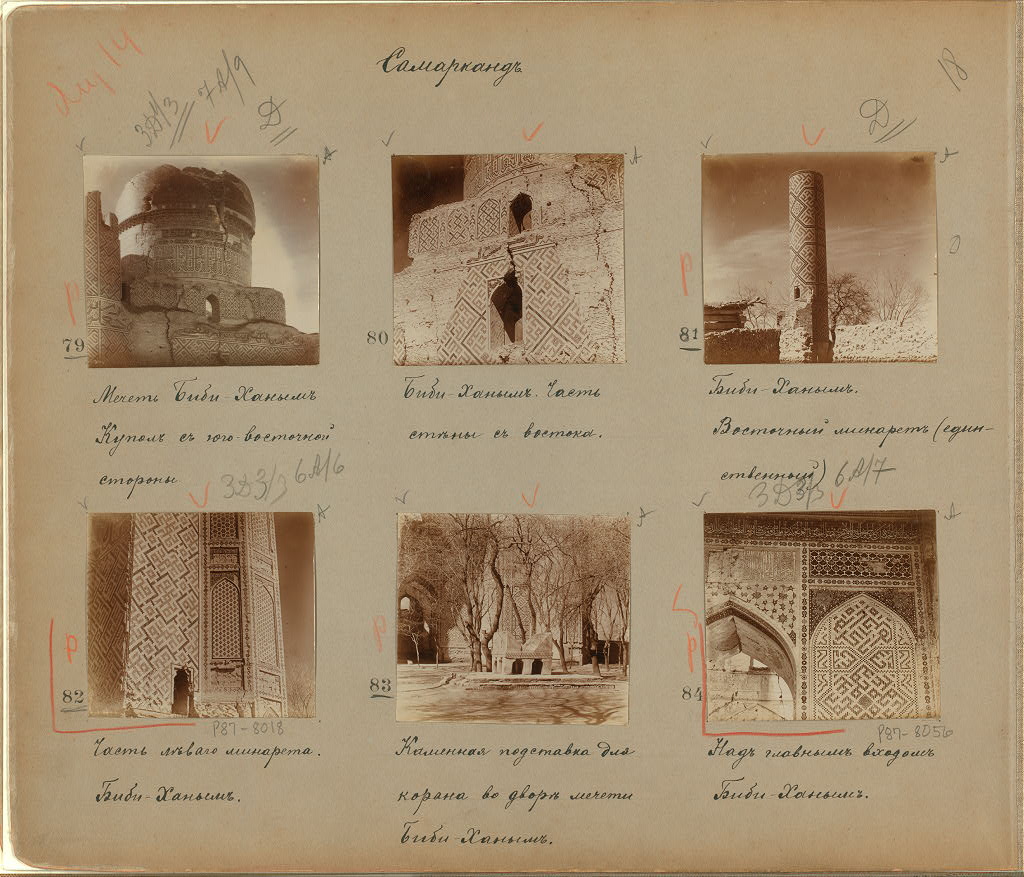 Самаркандъ
18
3D/3
7A/9
Д
Д
79
80
81
Мечеть Биби-Ханымъ
Куполъ съ юго-восточной
стороны
Биби-Ханымъ. Часть
стѣны съ востока.
Биби-Ханымъ.
Восточный минаретъ (един-
ственный)
6A/6
6A/7
р
р
р
р
р
82
83
84
P87-8018
P87-8056
Часть лѣваго минарета.
Биби-Ханымъ.
Каменная подставка для
корана во дворѣ мечети
Биби-Ханымъ.
Надъ главнымъ входомъ
Биби-Ханымъ.